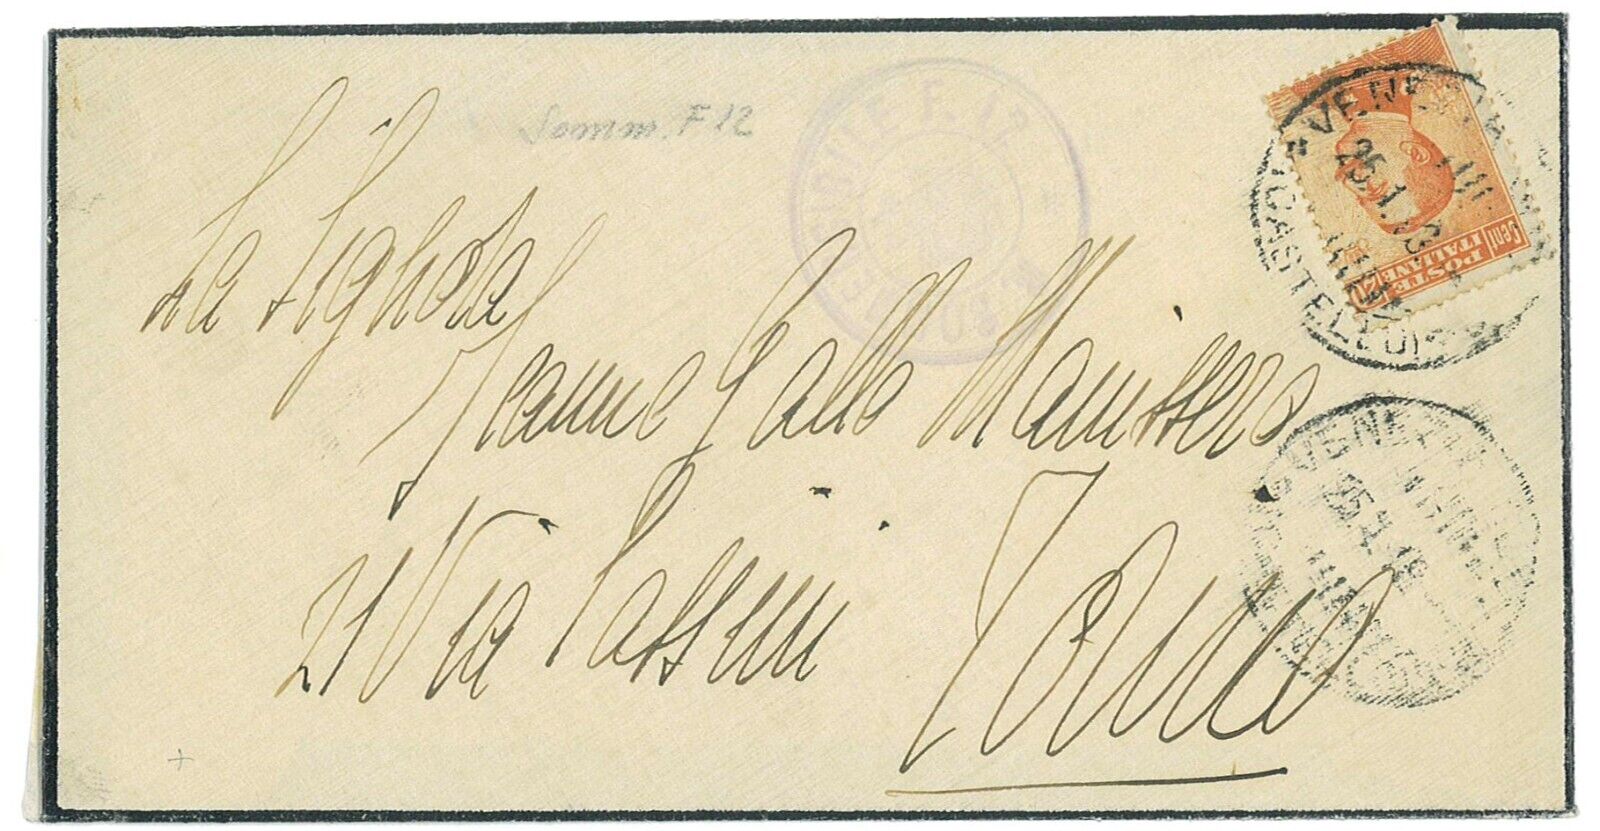 Somm. F 12
La Signora
Jeanne Gallo Manissero
21 Via Cassini
Torino
POSTE
ITALIANE
Cent 20
VENEZIA
25.1.18
CASTELLO
VENEZIA
25.1.18